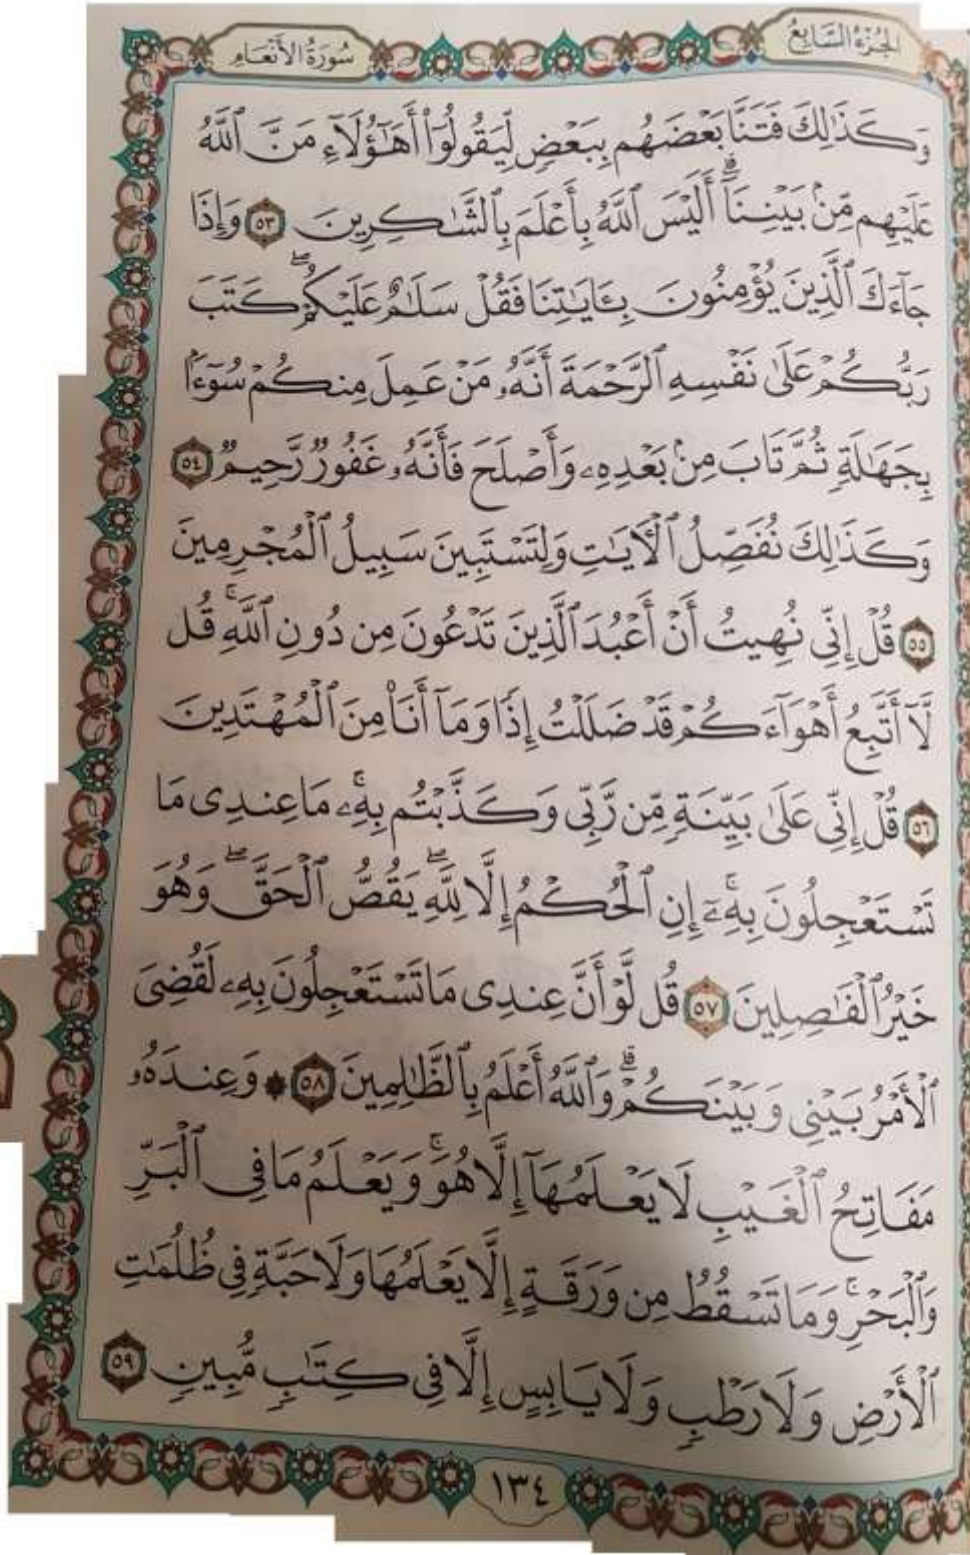 الجُزْءُ السَّابِعُ
سُورَةُ الأَنْعَامِ
وَكَذَٰلِكَ فَتَنَّا بَعْضَهُم بِبَعْضٍ لِّيَقُولُوٓا۟ أَهَٰٓؤُلَآءِ مَنَّ ٱللَّهُ
عَلَيْهِم مِّنۢ بَيْنِنَآ ۗ أَلَيْسَ ٱللَّهُ بِأَعْلَمَ بِٱلشَّٰكِرِينَ ٥٣ وَإِذَا
جَآءَكَ ٱلَّذِينَ يُؤْمِنُونَ بِـَٔايَٰتِنَا فَقُلْ سَلَٰمٌ عَلَيْكُمْ ۖ كَتَبَ
رَبُّكُمْ عَلَىٰ نَفْسِهِ ٱلرَّحْمَةَ أَنَّهُۥ مَنْ عَمِلَ مِنكُمْ سُوٓءًۢا
بِجَهَٰلَةٍ ثُمَّ تَابَ مِنۢ بَعْدِهِۦ وَأَصْلَحَ فَأَنَّهُۥ غَفُورٌ رَّحِيمٌ ٥٤
وَكَذَٰلِكَ نُفَصِّلُ ٱلْـَٔايَٰتِ وَلِتَسْتَبِينَ سَبِيلُ ٱلْمُجْرِمِينَ
٥٥ قُلْ إِنِّى نُهِيتُ أَنْ أَعْبُدَ ٱلَّذِينَ تَدْعُونَ مِن دُونِ ٱللَّهِ ۚ قُل
لَّآ أَتَّبِعُ أَهْوَآءَكُمْ ۙ قَدْ ضَلَلْتُ إِذًا وَمَآ أَنَا۠ مِنَ ٱلْمُهْتَدِينَ
٥٦ قُلْ إِنِّى عَلَىٰ بَيِّنَةٍ مِّن رَّبِّى وَكَذَّبْتُم بِهِۦ ۚ مَا عِندِى مَا
تَسْتَعْجِلُونَ بِهِۦٓ ۚ إِنِ ٱلْحُكْمُ إِلَّا لِلَّهِ ۖ يَقُصُّ ٱلْحَقَّ ۖ وَهُوَ
خَيْرُ ٱلْفَٰصِلِينَ ٥٧ قُل لَّوْ أَنَّ عِندِى مَا تَسْتَعْجِلُونَ بِهِۦ لَقُضِىَ
ٱلْأَمْرُ بَيْنِى وَبَيْنَكُمْ ۗ وَٱللَّهُ أَعْلَمُ بِٱلظَّٰلِمِينَ ٥٨ ۞ وَعِندَهُۥ
مَفَاتِحُ ٱلْغَيْبِ لَا يَعْلَمُهَآ إِلَّا هُوَ ۚ وَيَعْلَمُ مَا فِى ٱلْبَرِّ
وَٱلْبَحْرِ ۚ وَمَا تَسْقُطُ مِن وَرَقَةٍ إِلَّا يَعْلَمُهَا وَلَا حَبَّةٍ فِى ظُلُمَٰتِ
ٱلْأَرْضِ وَلَا رَطْبٍ وَلَا يَابِسٍ إِلَّا فِى كِتَٰبٍ مُّبِينٍ ٥٩
١٣٤